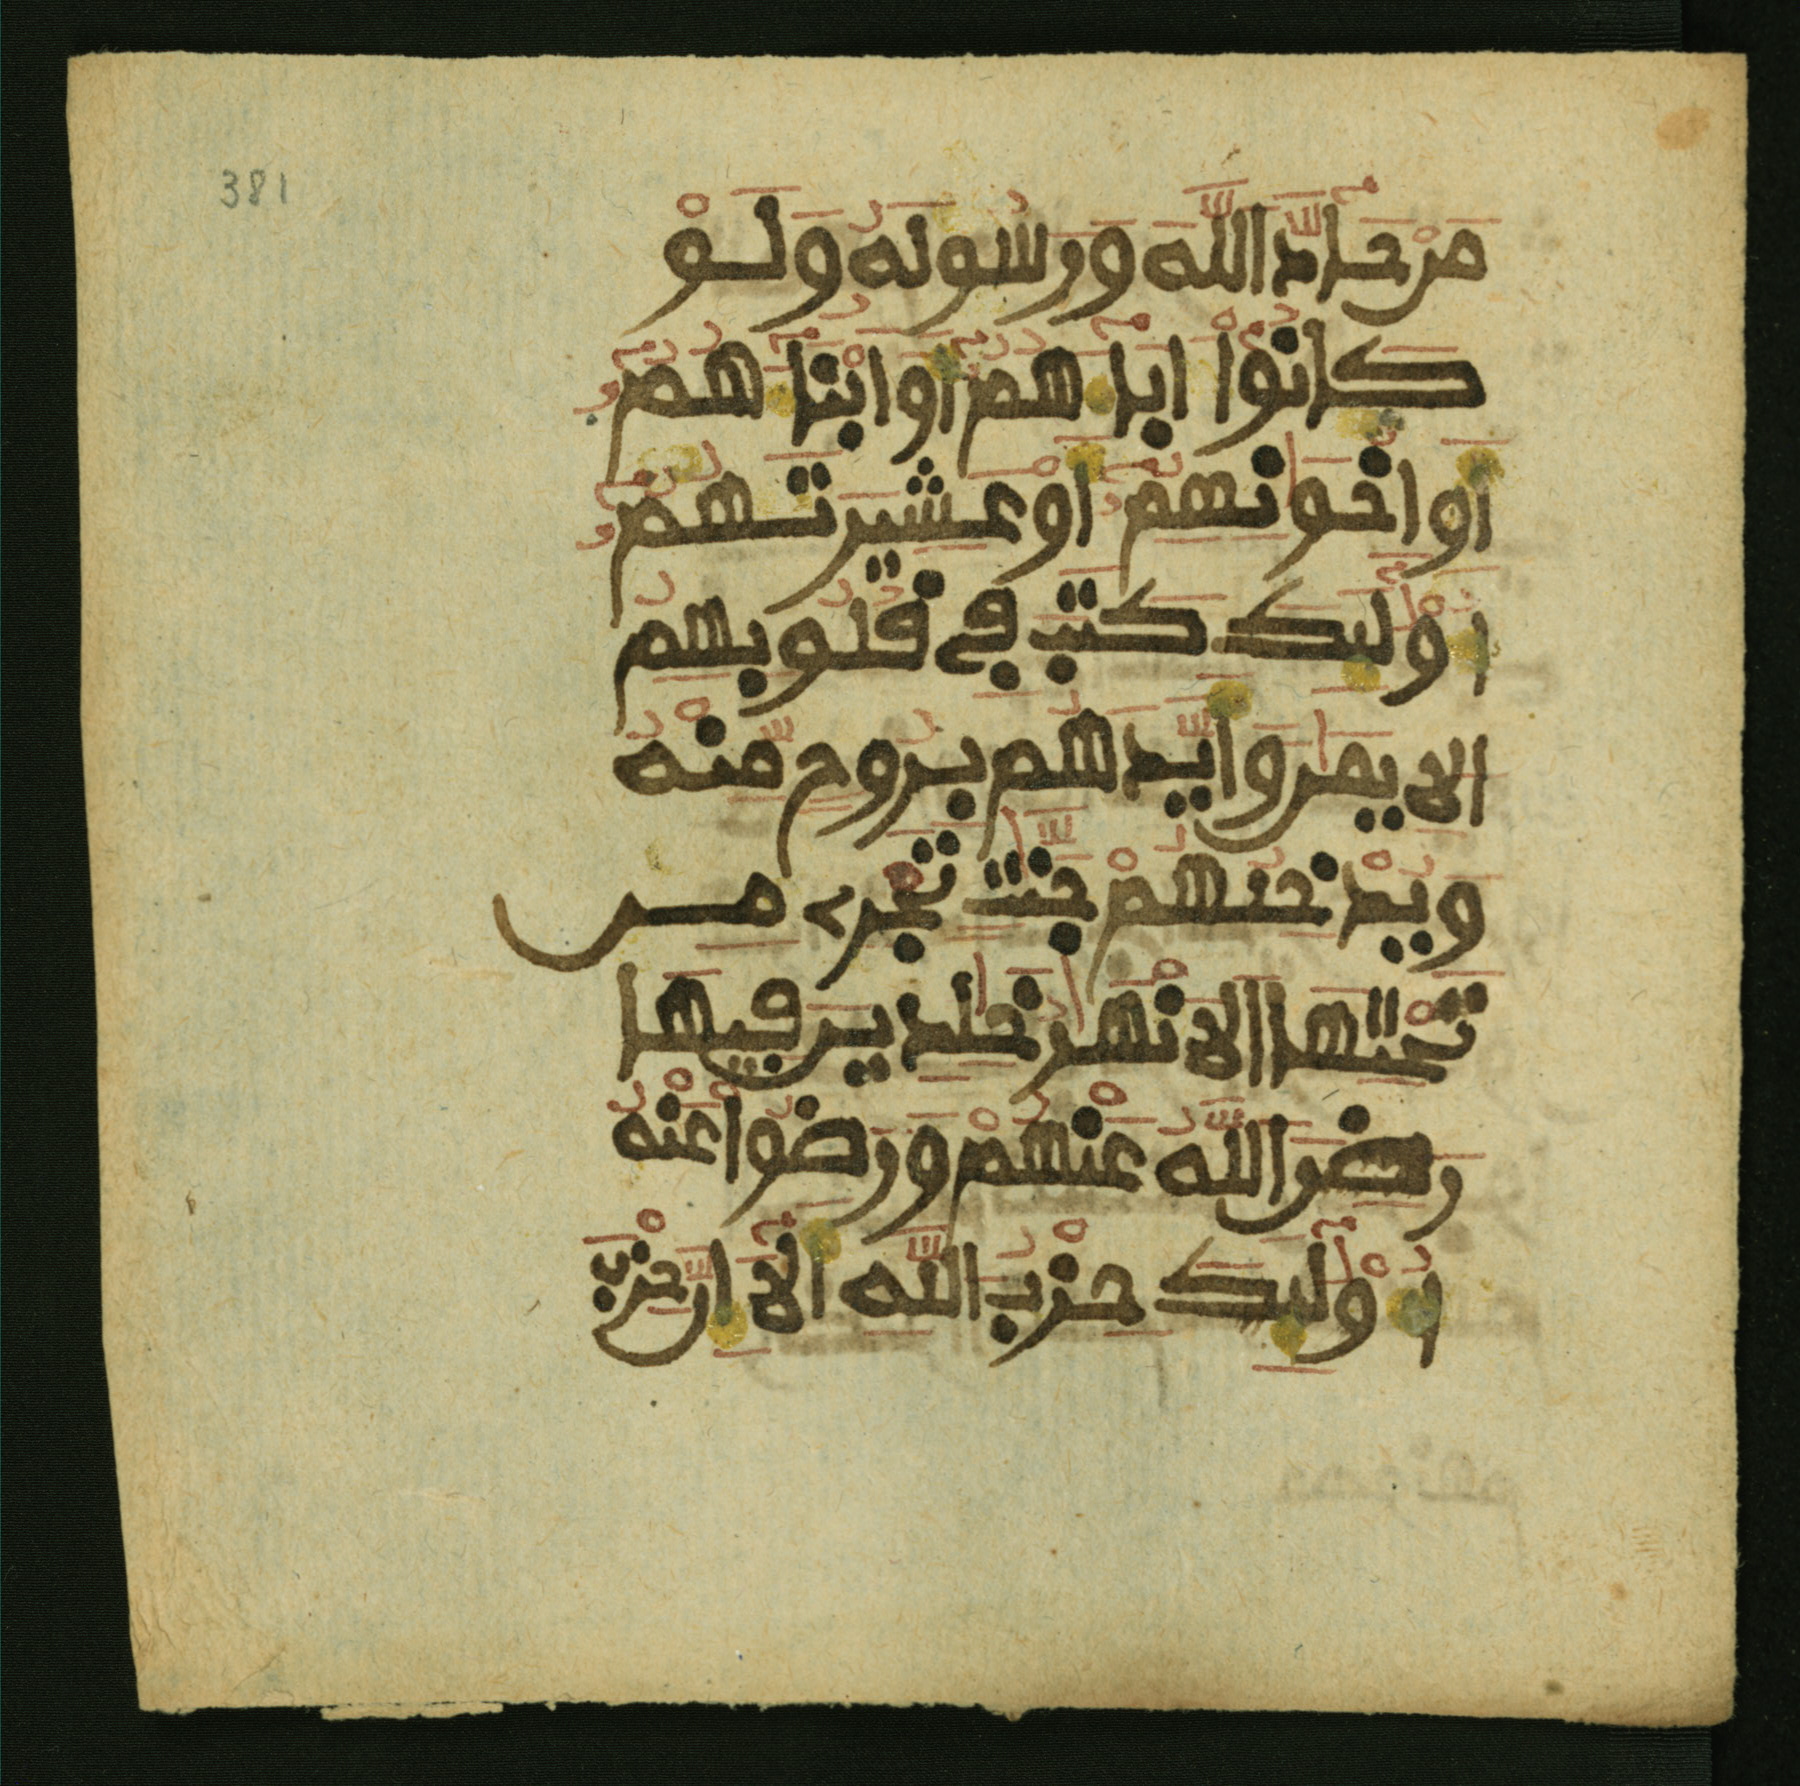 381
من حاد الله ورسوله ولو
كانوا ابا هم او ابنا هم
او اخونهم او عشيرتهم
اوليك كتب في قلوبهم
الايمن وايدهم بروح منه
ويدخلهم جنت تجرے من
تحتها الانهر خلدين فيها
رضى الله عنهم ورضوا عنه
اوليك حزب الله الا ان حزب